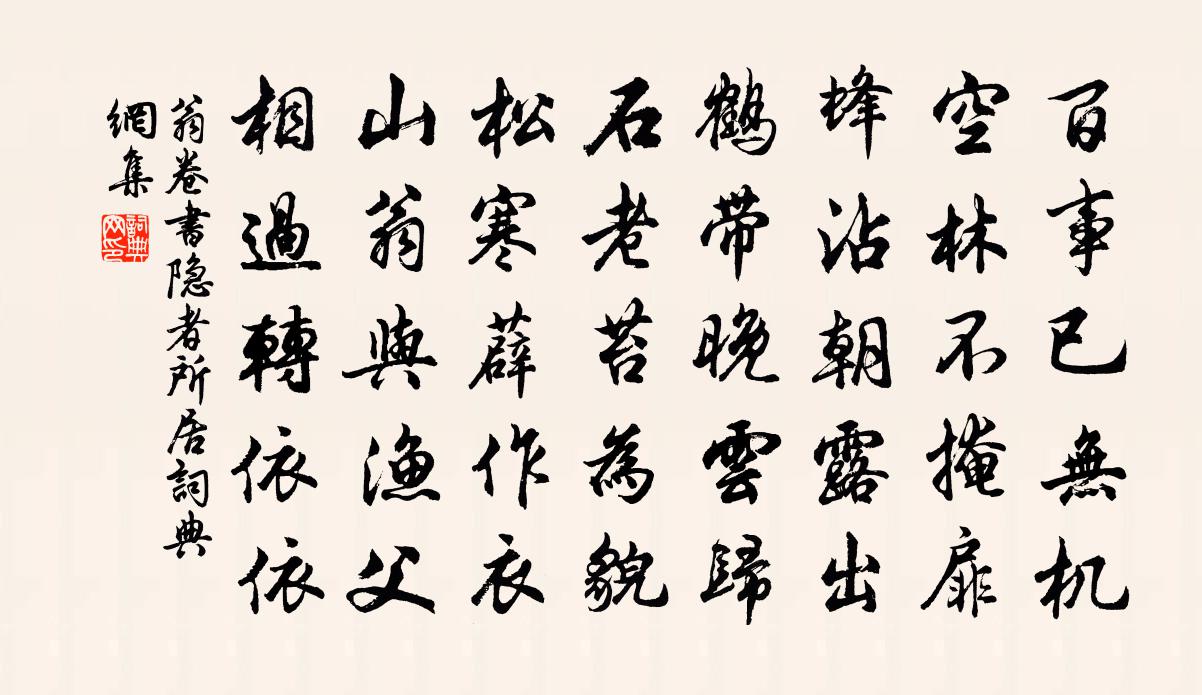 百事已無机
空林不掩扉
蜂沾朝露出
鶴帶晚雲歸
石老苔為貌
松寒薜作衣
山翁與漁父
相過轉依依
翁卷書隐者所居詞典
網集
詞典
网印